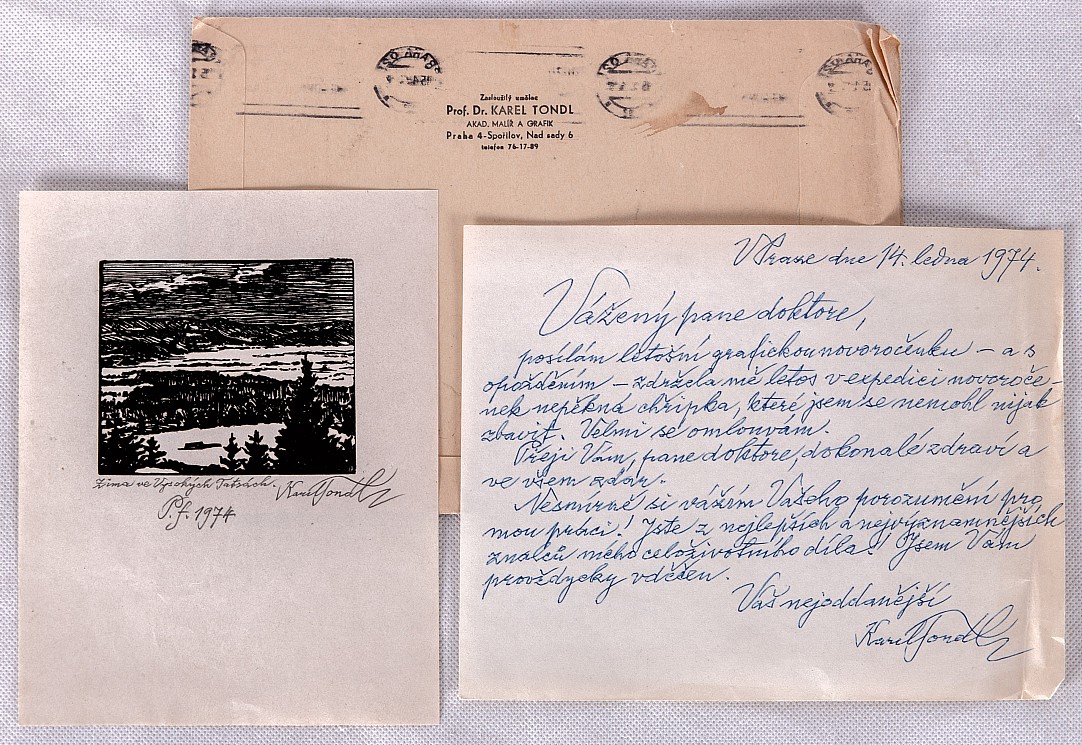 PRAHA
Zasloužilý umělec
Prof. Dr. KAREL TONDL
AKAD. MALÍŘ A GRAFIK
Praha 4-Spořilov, Nad sady 6
telefon 76-17-89
Zima ve Vysokých Tatrách. Karel Tondl
P.f. 1974
V Praze dne 14. ledna 1974.
Vážený pane doktore,
posílám letošní grafickou novoročenku – a s
opožděním – zdržela mě letos v expedici novoroče-
nek nepěkná chřipka, které jsem se nemohl nijak
zbavit. Velmi se omlouvám.
Přeji Vám, pane doktore, dokonalé zdraví a
ve všem zdar.
Nesmírně si vážím Vašeho porozumění pro
mou práci! Jste z nejlepších a nejvýznamnějších
znalců mého celoživotního díla! Jsem Vám
provždycky vděčen.
Váš nejoddanější
Karel Tondl